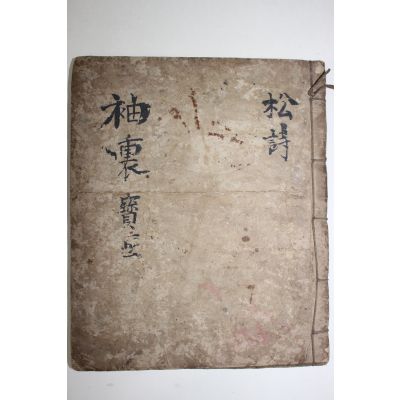 松詩
袖裏寶